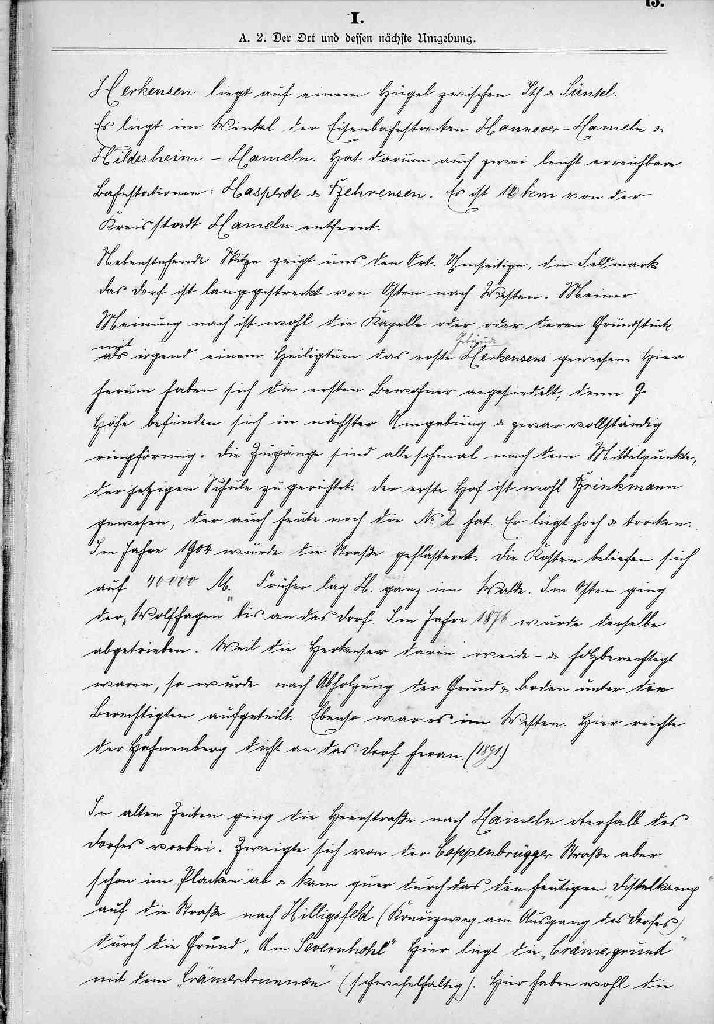 13.
I.
A. 2. Der Ort und dessen nächste Umgebung.
Herkensen liegt auf einem Hügel zwischen Ith u Süntel.
Es liegt im Winkel der Eisenbahnstrecken Hannover-Hameln u
Hildesheim - Hameln. Hat darum auch zwei leicht erreichbare
Bahnstationen: Hasperde u Behrensen. Es ist 12 km von der
Kreisstadt Hameln entfernt.
Nebenstehende Skizze zeigt uns den Ort. Umseitige, die Feldmark
das Dorf ist langgestreckt von Osten nach Westen. Meiner
Meinung nach ist wohl die Kapelle oder oder deren Grundstück
mit
als irgend einem Heiligtum das erste Gebäude Herkensens gewesen. Hier
herum haben sich die ersten Bewohner angesiedelt, denn 9
Höfe befinden sich in nächster Umgebung u zwar vollständig
ringförmig. Die Zugänge sind alle schmal nach dem Mittelpunkte,
der jetzigen Schule zu gerichtet. Der erste Hof ist wohl Brinkmann
gewesen, der auch heute noch die No 1 hat. Er liegt hoch u trocken.
Im Jahre 1904 wurde die Straße gepflastert. Die Kosten beliefen sich
auf 40000 M. Früher lag H. ganz im Walde. Im Osten ging
der "Wolfhagen" bis an das Dorf. Im Jahre 1876 wurde derselbe
abgetrieben. Weil die Herkenser darin weide- u holzberechtigt
waren, so wurde nach Abholzung der Grund u Boden unter die
Berechtigten aufgeteilt. Ebenso war es im Westen. Hier reichte
der Hahnenberg dicht an das Dorf heran (1891)
In alten Zeiten ging die Heerstraße nach Hameln oberhalb des
Dorfes vorbei. Zweigte sich von der Coppenbrügger Straße aber
schon im Placken ab u kam quer durch das den heutigen "Distelkamp
auf die Straße nach Hilligsfeld (Kreuzweg am Ausgang des Dorfes)
durch die Grund "Am " Hier liegt die "Krämergrund"
mit dem "Krämerbrunnen" (schwefelhaltig). Hier haben wohl die